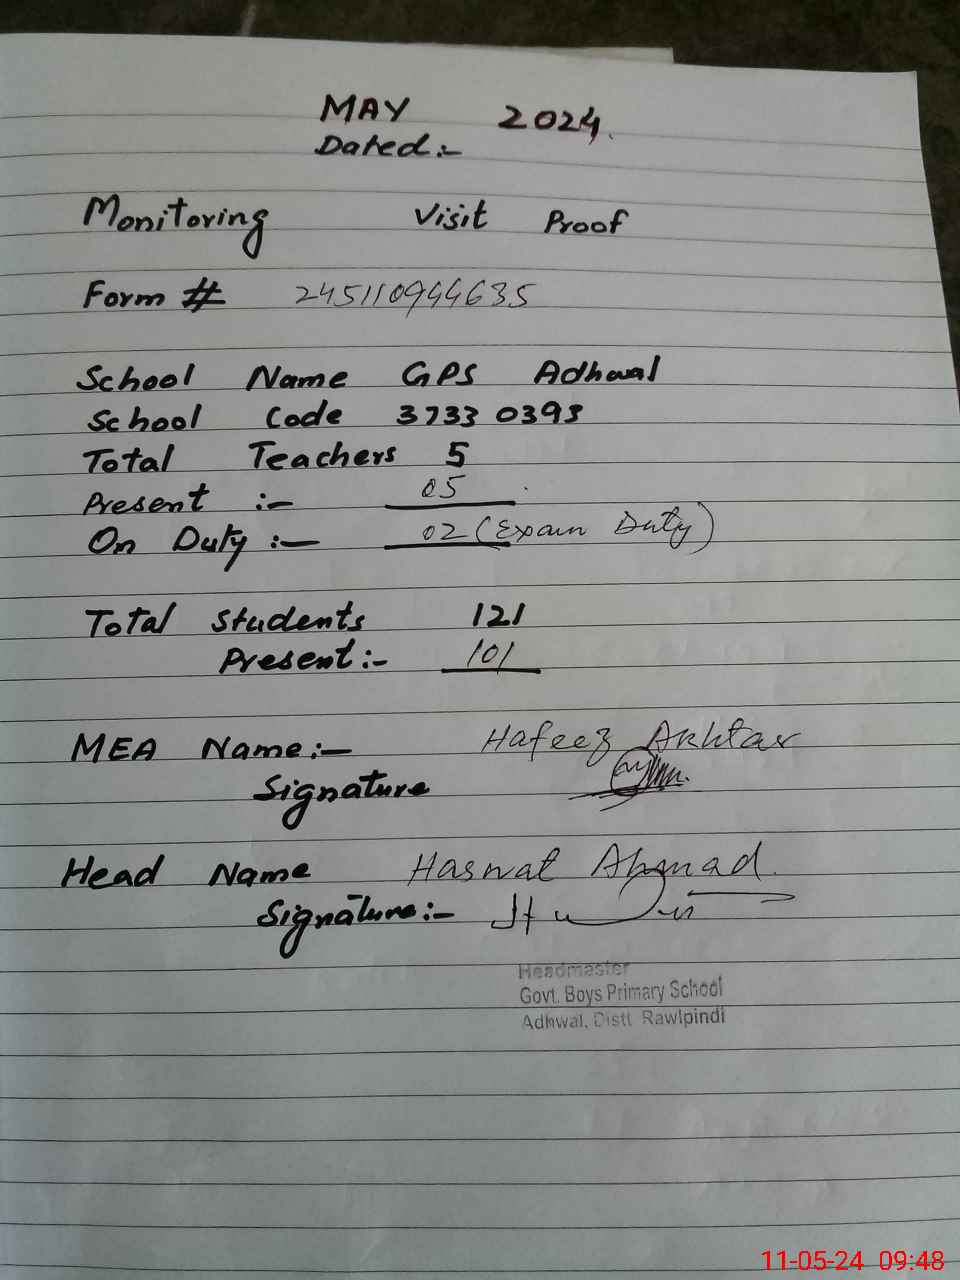 MAY 2024.
Dated:-
Monitoring Visit Proof
Form # 245110944635
School Name GPS Adhwal
School Code 3733 0393
Total Teachers 5
Present :- 05
On Duty :- 02 (Exam Duty)
Total Students 121
Present:- 101
MEA Name:- Hafeez Akhtar
Signature
Head Name Hasnat Ahmad.
Signature:-
Headmaster
Govt. Boys Primary School
Adhwal, Distt Rawlpindi
11-05-24 09:48